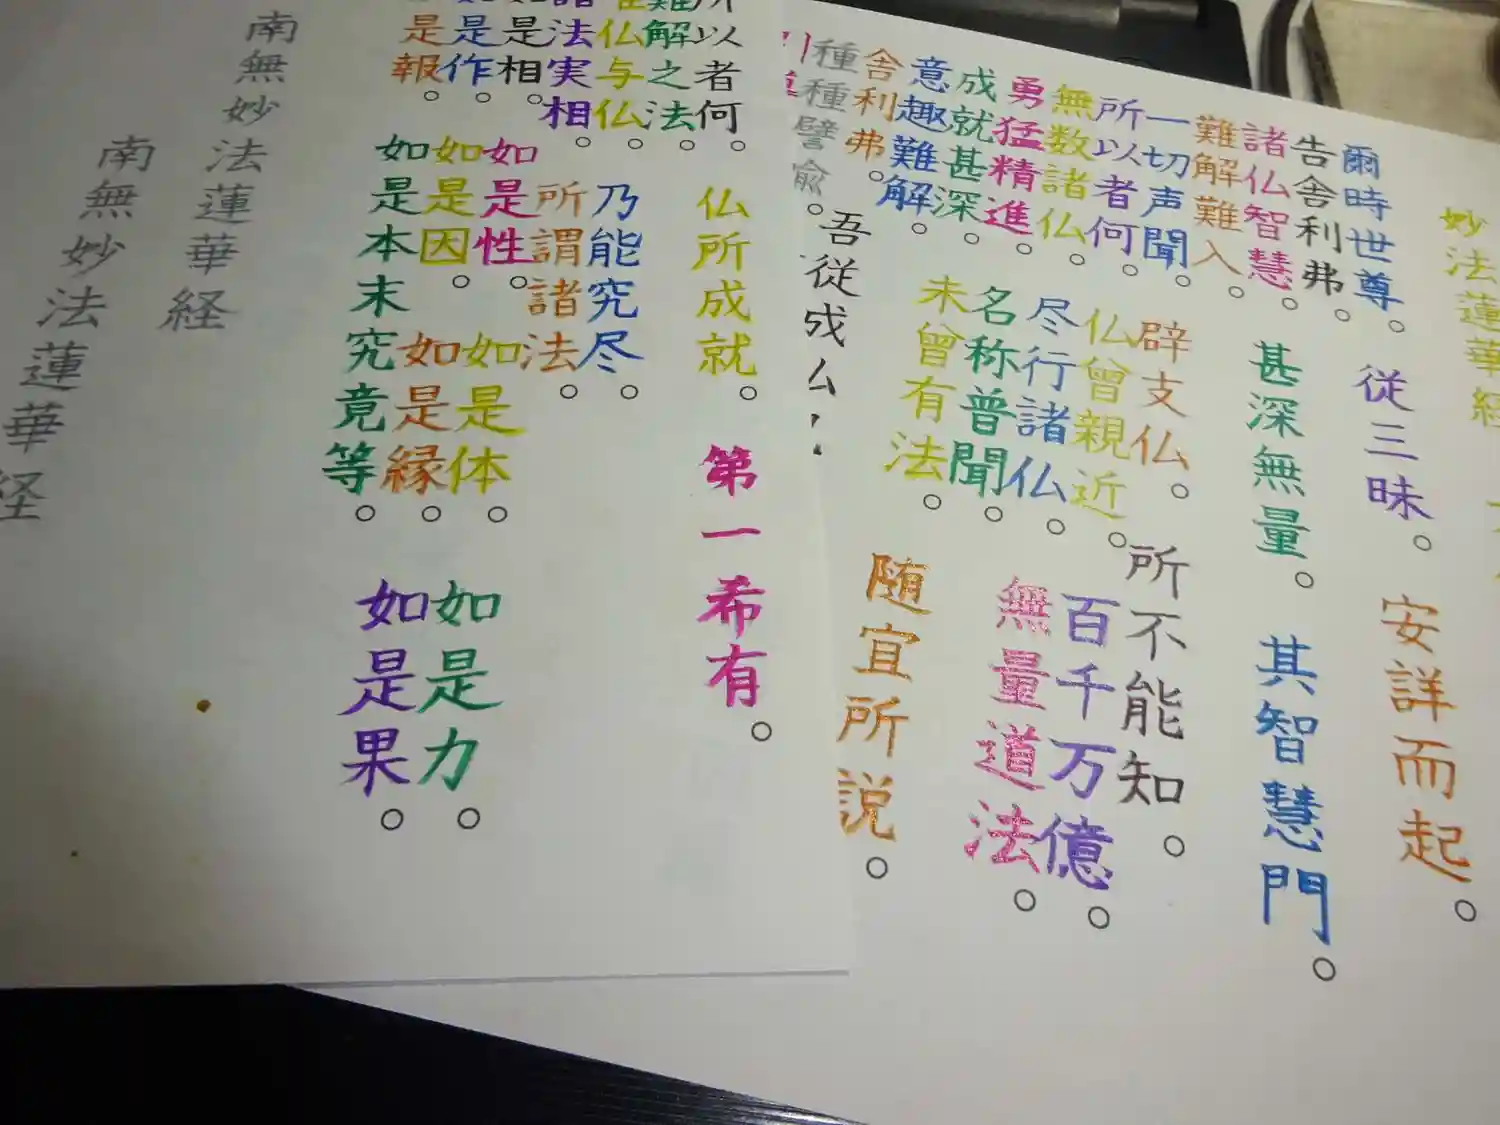 妙法蓮華経
爾時世尊。従三昧。安詳而起。
告舎利弗。
諸仏智慧。甚深無量。其智慧門。
難解難入。
一切声聞。辟支仏。所不能知。
所以者何。仏曾親近。百千万億。
無数諸仏。尽行諸仏。無量道法。
勇猛精進。名称普聞。
成就甚深。未曾有法。随宜所説。
意趣難解。
舎利弗。吾従成
種種譬喩。
所以者何。仏所成就。第一希有。
難解之法。
仏与仏。乃能究尽。
諸法実相。所謂諸法。
如是相。如是性。如是体。如是力。
如是作。如是因。如是縁。如是果。
如是報。如是本末究竟等。
南無妙法蓮華経
南無妙法蓮華経